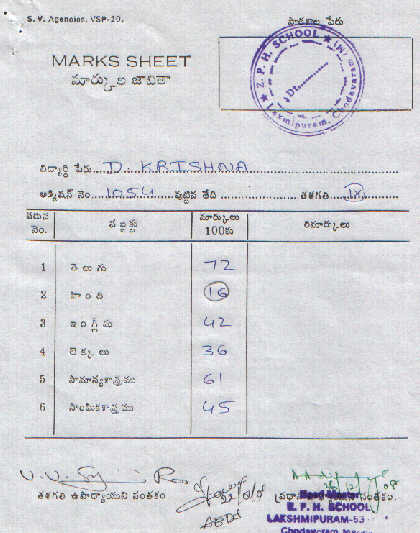 S. V. Agencies. VSP-20.
పాఠశాల పేరు
MARKS SHEET
మార్కుల జాబితా
Z. P. H. SCHOOL
Laxmipuram, Chodavaram (M)
విద్యార్థి పేరు D. KRISHNA
అడ్మిషన్ నెం. 1054 పుట్టిన తేది తరగతి IX
వరుస నెం. సబ్జెక్టు మార్కులు 100కు రిమార్కులు
1 తెలుగు 72
2 హిందీ 16
3 ఇంగ్లీషు 42
4 లెక్కలు 36
5 సామాన్యశాస్త్రము 61
6 సాంఘికశాస్త్రము 45
తరగతి ఉపాధ్యాయుని సంతకం
సంతకం.
Head Master
Z. P. H. SCHOOL
LAKSHMIPURAM-53